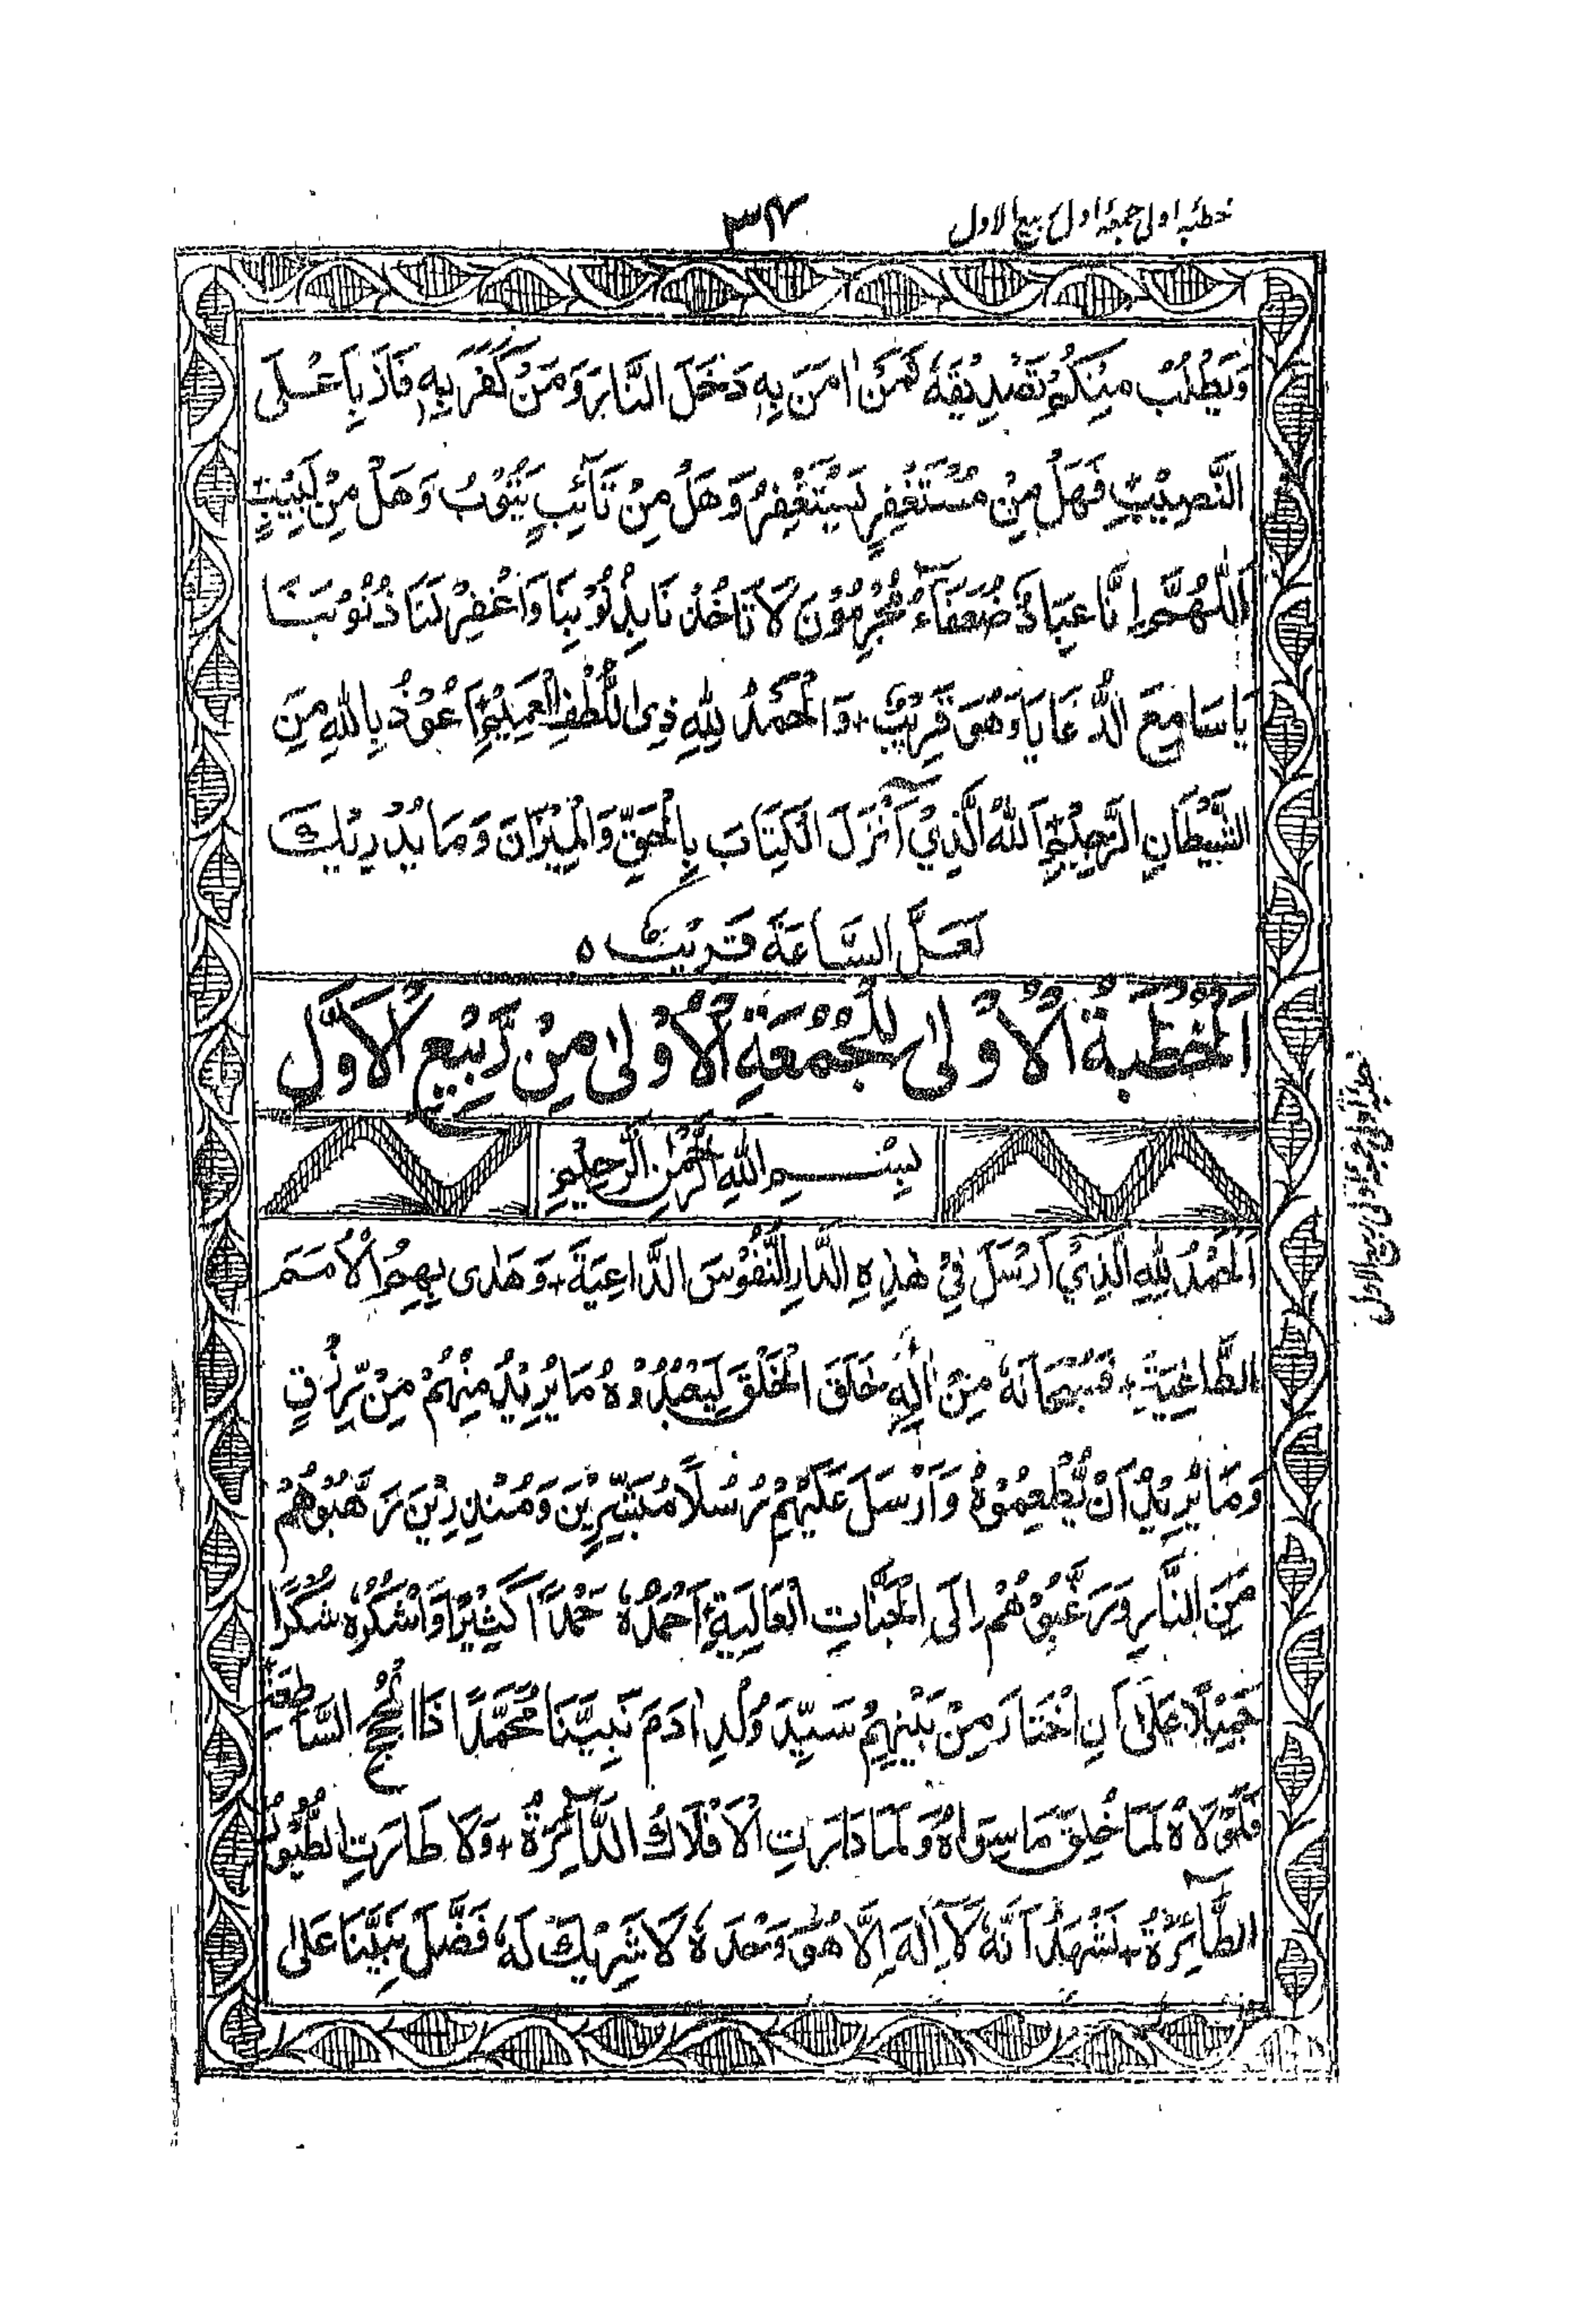 خطبۂ اولی جمعۂ اول ربیع الاول
۳۴
وَیَطْلُبُ مِنْکُمْ تَصْدِیْقَهٗ فَمَنْ اٰمَنَ بِهٖ دَخَلَ النَّارَ وَمَنْ کَفَرَ بِهٖ فَازَ بِاَعْلَی
النَّصِیْبِ فَهَلْ مِنْ مُسْتَغْفِرٍ یَسْتَغْفِرُ وَهَلْ مِنْ تَآئِبٍ یَتُوْبُ وَهَلْ مِنْ لَبِیْبٍ
اَللّٰهُمَّ اِنَّا عِبَادُكَ ضُعَفَآءُ مُجْرِمُوْنَ لَا تَاخُذْنَا بِذُنُوْبِنَا وَاغْفِرْ لَنَا ذُنُوْبَنَا
یَا سَامِعَ الدُّعَا یَا وَهُوَ قَرِیْبٌ + وَالْحَمْدُ لِلّٰهِ ذِی اللُّطْفِ الْعَمِیْمِ + اَعُوْذُ بِاللّٰهِ مِنَ
الشَّیْطَانِ الرَّجِیْمِ + اَللّٰهُ الَّذِیْٓ اَنْزَلَ الْکِتَابَ بِالْحَقِّ وَالْمِیْزَانَ وَمَا یُدْرِیْكَ
لَعَلَّ السَّاعَةَ قَرِیْبٌ ہ
اَلْخُطْبَةُ الْاُوْلٰی لِلْجُمُعَةِ الْاُوْلٰی مِنْ رَّبِیْعِ الْاَوَّلِ
بِسْمِ اللّٰهِ الرَّحْمٰنِ الرَّحِیْمِ
اَلْحَمْدُ لِلّٰهِ الَّذِیْٓ اَرْسَلَ فِیْ هٰذِهِ الدَّارِ النُّفُوْسَ الدَّاعِیَةَ + وَهَدٰی بِهِمُ الْاُمَمَ
الطَّاغِیَةَ + فَسُبْحَانَهٗ مِنْ اِلٰهٍ خَلَقَ الْخَلْقَ لِیَعْبُدُوْهُ مَا یُرِیْدُ مِنْهُمْ مِنْ رِّزْقٍ
وَمَا یُرِیْدُ اَنْ یُّطْعِمُوْهُ وَاَرْسَلَ عَلَیْهِمْ رُسُلًا مُبَشِّرِیْنَ وَمُنْذِرِیْنَ رَهَّبُوْهُمْ
مِنَ النَّارِ وَرَغَّبُوْهُمْ اِلَی الْجَنَّاتِ الْعَالِیَةِ + اَحْمَدُهٗ حَمْدًا کَثِیْرًا وَاَشْکُرُهٗ شُکْرًا
جَمِیْلًا عَلٰٓی اَنِ اخْتَارَ مِنْ بَیْنِهِمْ سَیِّدَ وُلْدِ اٰدَمَ نَبِیَّنَا مُحَمَّدًا ذَا الْحُجَجِ السَّاطِعَةِ
فَلَوْلَاهُ لَمَا خُلِقَ مَا سِوَاهُ وَلَمَا دَارَتِ الْاَفْلَاكُ الدَّآئِرَةُ + وَلَا طَارَتِ الطُّیُوْرُ
الطَّآئِرَةُ + نَشْهَدُ اَنَّهٗ لَآ اِلٰهَ اِلَّا هُوَ وَحْدَهٗ لَا شَرِیْكَ لَهٗ فَضَّلَ نَبِیَّنَا عَلٰی
خطبۂ اولی جمعۂ اولی ربیع الاول